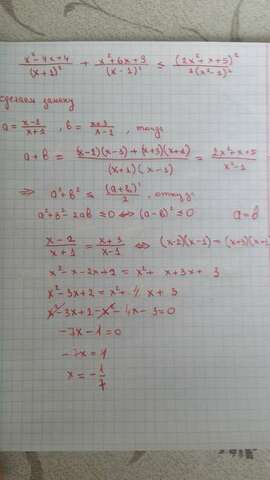 x²-4x+4/(x+1)² + x²+6x+9/(x-1)² ≤ (2x²+x+5)²/2(x²-1)²
сделаем замену
a = x-2/x+1, b = x+3/x-1, тогда
a+b = (x-2)(x-1)+(x+3)(x+1)/(x+1)(x-1) = 2x²+x+5/x²-1
⇒ a²+b² ≤ (a+b)²/2, откуда
a²+b²-2ab ≤0 ⇔ (a-b)² ≤0 a=b
x-2/x+1 = x+3/x-1 ⇔ (x-2)(x-1) = (x+3)(x
x²-x-2x+2 = x²+ x+3x+ 3
x²-3x+2 = x²+ 4x+3
x²-3x+2-x²-4x-3=0
-7x-1=0
-7x=1
x = -1/7